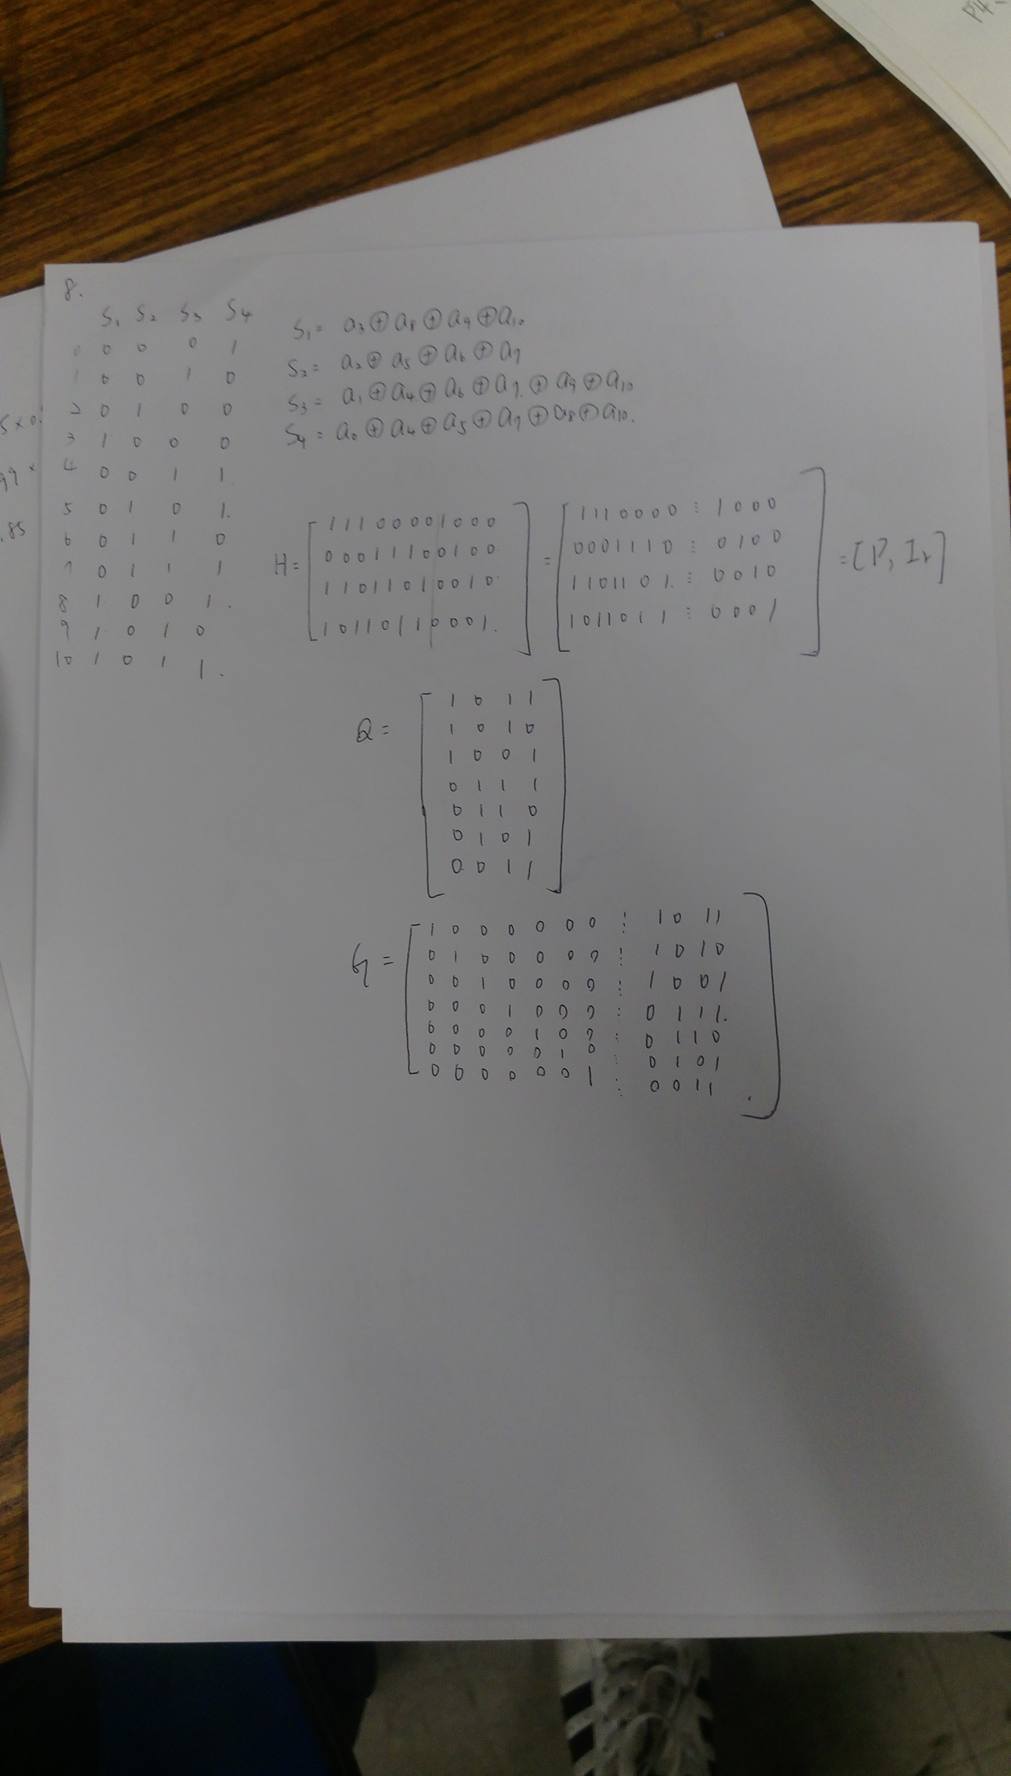 8.
S₁ S₂ S₃ S₄
0 0 0 0 1
1 0 0 1 0
2 0 1 0 0
3 1 0 0 0
4 0 0 1 1
5 0 1 0 1.
6 0 1 1 0
7 0 1 1 1
8 1 0 0 1.
9 1 0 1 0
10 1 0 1 1.
S₁ = a₃⊕a₈⊕a₉⊕a₁₀
S₂ = a₂⊕a₅⊕a₆⊕a₇
S₃ = a₁⊕a₄⊕a₆⊕a₇⊕a₉⊕a₁₀
S₄ = a₀⊕a₄⊕a₅⊕a₇⊕a₈⊕a₁₀.
H = [ 11100001000 ] = [ 1110000 ⋮ 1000 ] = [P, Ir]
00011100100 0001110 ⋮ 0100
11011010010. 1101101. ⋮ 0010
10110110001. 1011011 ⋮ 0001
Q =
1 0 1 1
1 0 1 0
1 0 0 1
0 1 1 1
0 1 1 0
0 1 0 1
0 0 1 1
G =
1 0 0 0 0 0 0 ⋮ 1 0 1 1
0 1 0 0 0 0 0 ⋮ 1 0 1 0
0 0 1 0 0 0 0 ⋮ 1 0 0 1
0 0 0 1 0 0 0 ⋮ 0 1 1 1.
0 0 0 0 1 0 0 ⋮ 0 1 1 0
0 0 0 0 0 1 0 ⋮ 0 1 0 1
0 0 0 0 0 0 1 ⋮ 0 0 1 1
.85